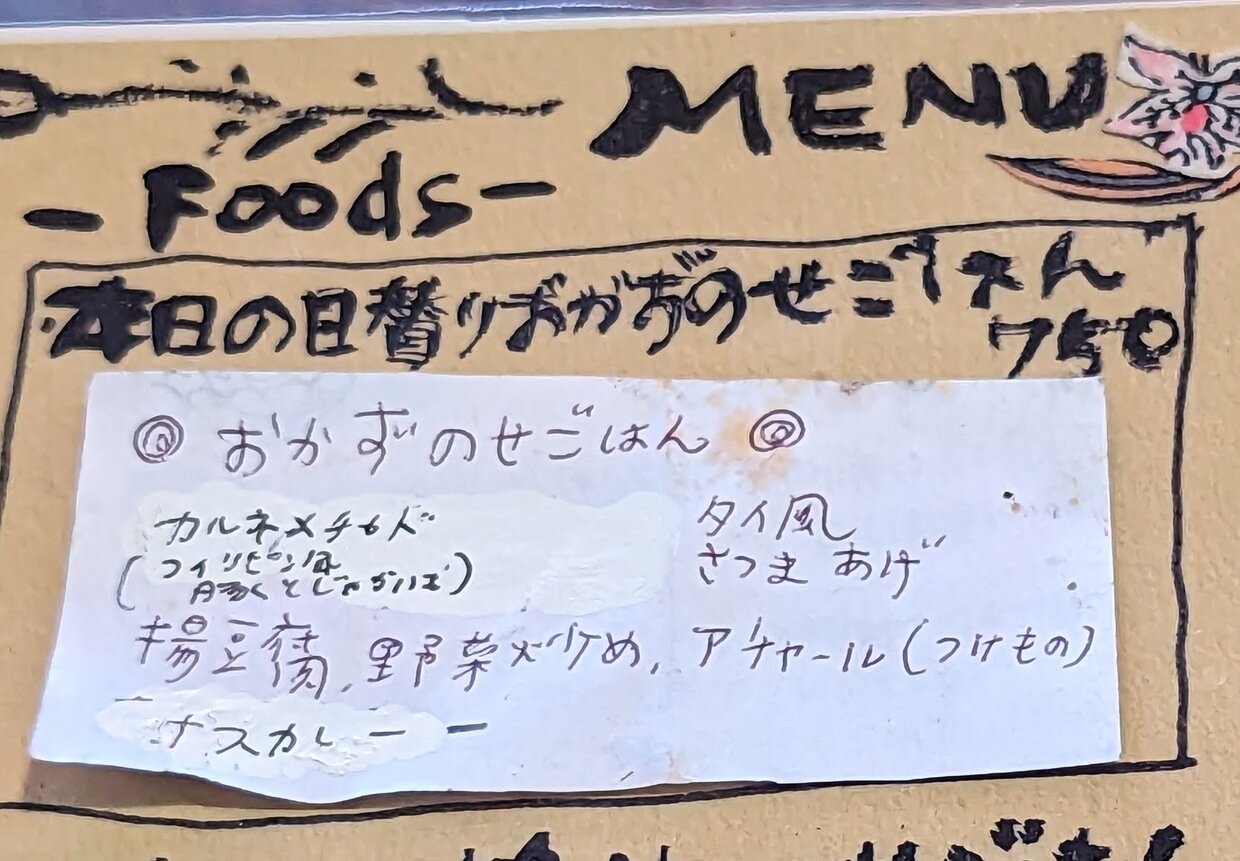 MENU
-Foods-
本日の日替りおかずのせごはん
750
◎ おかずのせごはん ◎
カルネメチャド
(フィリピン風
豚肉とじゃがいも)
タイ風
さつまあげ
揚豆腐, 野菜炒め, アチャール(つけもの)
ナスカレー